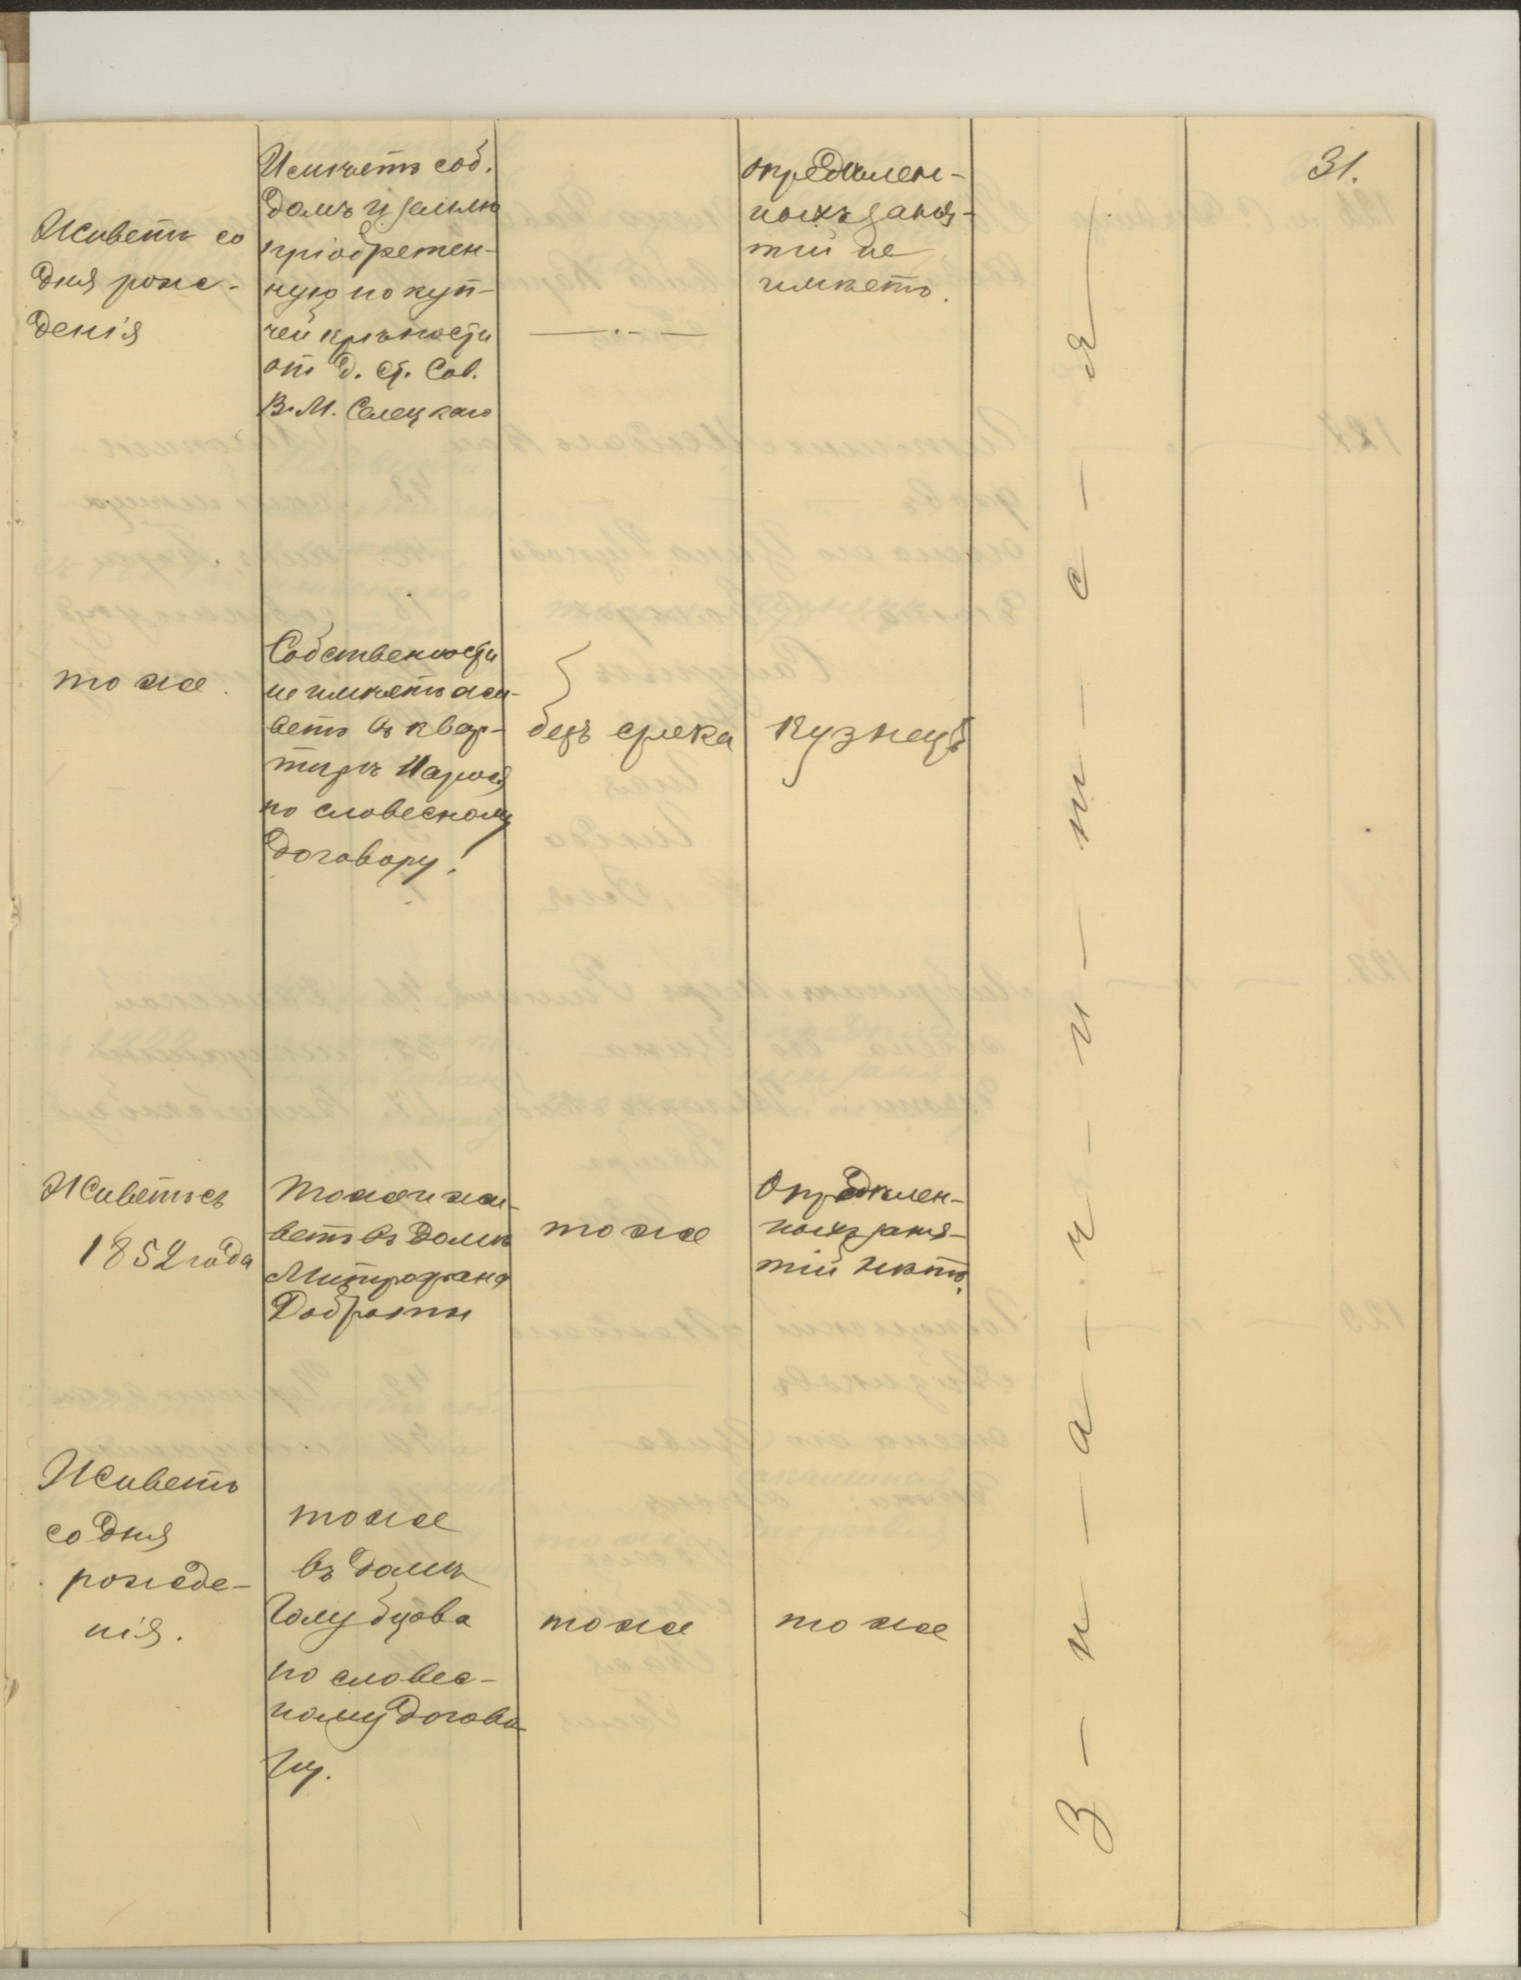 31.
Живетъ со
дня рож-
денія
Имѣетъ соб.
домъ и землю
пріобретен-
ную по куп-
чей крѣпости
отъ Д. Ст. Сов.
В. М. Селецкаго
— . —
опредѣлен-
ныхъ заня-
тій не
имѣетъ.
тоже.
Собственности
не имѣетъ жи-
ветъ въ квар-
тирѣ
по словесному
договору.
безъ срока
Кузнецъ
Живетъ съ
1852 года
тоже и жи-
ветъ въ домѣ
Митрофана
тоже
Опредѣлен-
ныхъ заня-
тій нѣтъ.
Живетъ
со дня
рожде-
нія.
тоже
въ домѣ
Голубцова
по словес-
ному догово
ру.
тоже
тоже
З - н - а - ч - и - т - с - я